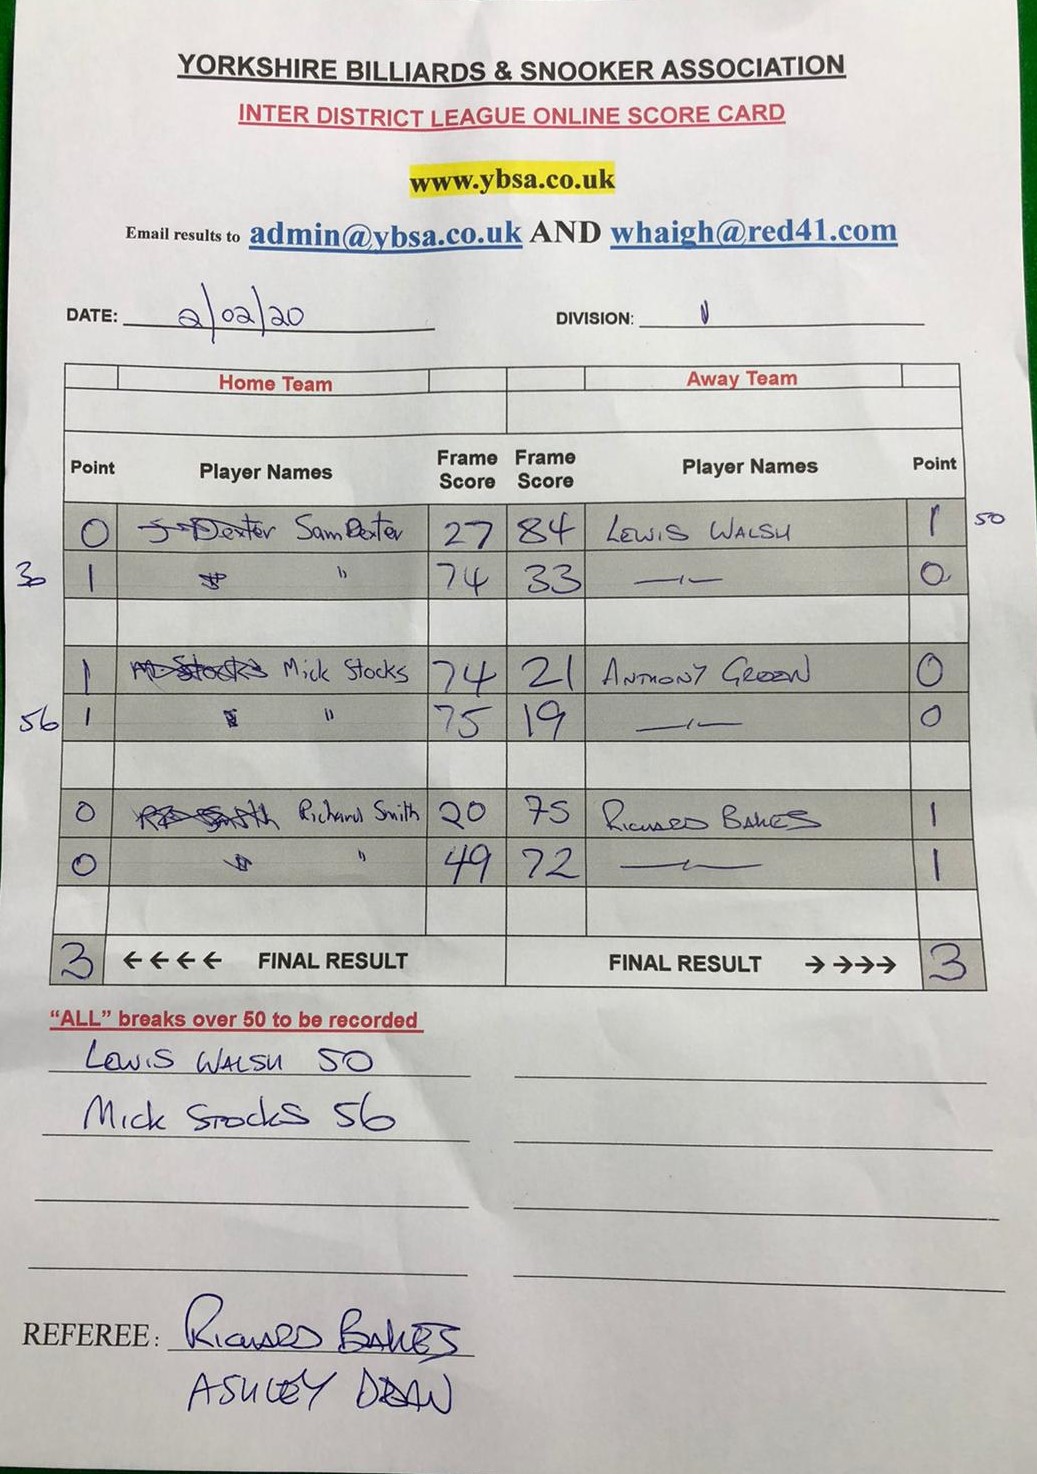 YORKSHIRE BILLIARDS & SNOOKER ASSOCIATION
INTER DISTRICT LEAGUE ONLINE SCORE CARD
www.ybsa.co.uk
Email results to admin@ybsa.co.uk AND whaigh@red41.com
DATE: 2/02/20 DIVISION: 1
Home Team Away Team
Point Player Names Frame Score Frame Score Player Names Point
0 Dexter Sam Dexter 27 84 LEWIS WALSH 1 50
30 1 " 74 33 —"— 0
1 M. Stocks Mick Stocks 74 21 ANTHONY GREEN 0
56 1 " 75 19 —"— 0
0 Smith Richard Smith 20 75 RICHARD BAKES 1
0 " 49 72 —"— 1
3 ←←←← FINAL RESULT FINAL RESULT →→→→ 3
"ALL" breaks over 50 to be recorded
LEWIS WALSH 50
MICK STOCKS 56
REFEREE: RICHARD BAKES
ASHLEY DEAN